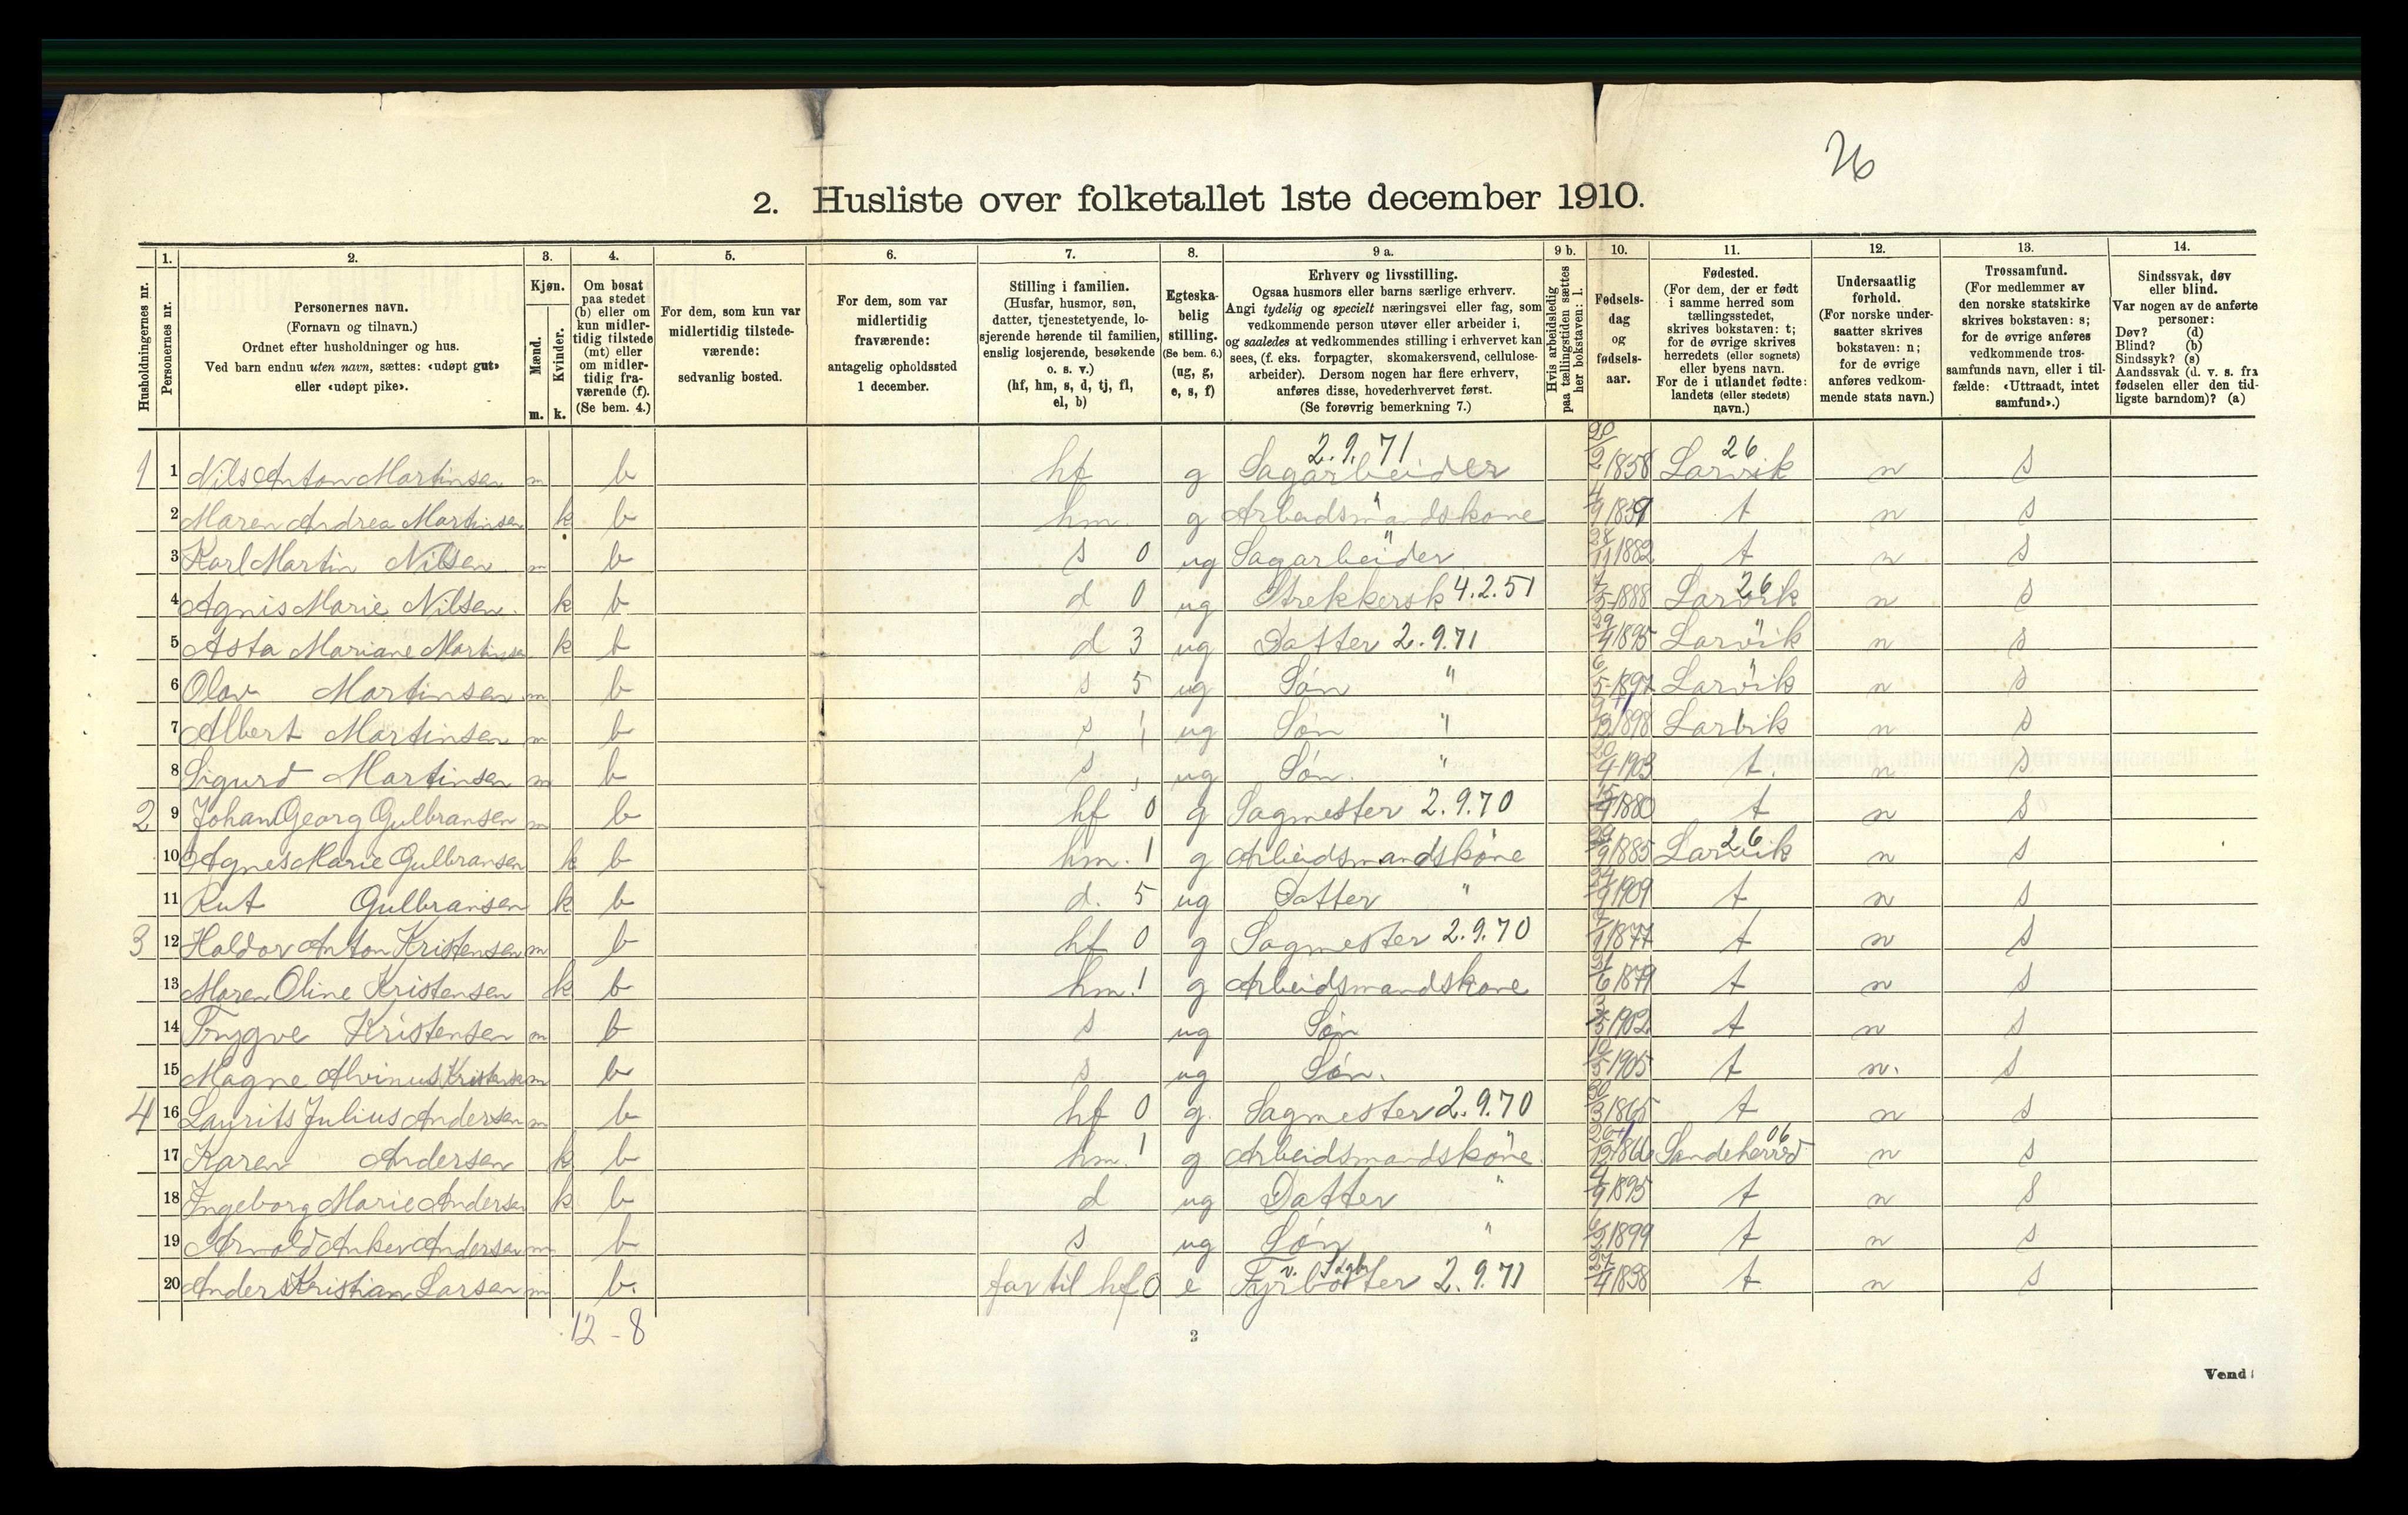 26
2. Husliste over folketallet 1ste december 1910.
Husholdningernes nr.
1. Personernes nr.
2. Personernes navn.
(Fornavn og tilnavn.)
Ordnet efter husholdninger og hus.
Ved barn endnu uten navn, sættes: «udøpt gut»
eller «udøpt pike».
3. Kjøn.
Mænd. m.
Kvinder. k.
4. Om bosat
paa stedet
(b) eller om
kun midler-
tidig tilstede
(mt) eller
om midler-
tidig fra-
værende (f).
(Se bem. 4.)
5. For dem, som kun var
midlertidig tilstede-
værende:
sedvanlig bosted.
6. For dem, som var
midlertidig
fraværende:
antagelig opholdssted
1 december.
7. Stilling i familien.
(Husfar, husmor, søn,
datter, tjenestetyende, lo-
sjerende hørende til familien,
enslig losjerende, besøkende
o. s. v.)
(hf, hm, s, d, tj, fl,
el, b)
8. Egteska-
belig
stilling.
(Se bem. 6.)
(ug, g,
e, s, f)
9 a. Erhverv og livsstilling.
Ogsaa husmors eller barns særlige erhverv.
Angi tydelig og specielt næringsvei eller fag, som
vedkommende person utøver eller arbeider i,
og saaledes at vedkommendes stilling i erhvervet kan
sees, (f. eks. forpagter, skomakersvend, cellulose-
arbeider). Dersom nogen har flere erhverv,
anføres disse, hovederhvervet først.
(Se forøvrig bemerkning 7.)
9 b. Hvis arbeidsledig
paa tællingstiden sættes
her bokstaven: l.
10. Fødsels-
dag
og
fødsels-
aar.
11. Fødested.
(For dem, der er født
i samme herred som
tællingsstedet,
skrives bokstaven: t;
for de øvrige skrives
herredets (eller sognets)
eller byens navn.
For de i utlandet fødte:
landets (eller stedets)
navn.)
12. Undersaatlig
forhold.
(For norske under-
saatter skrives
bokstaven: n;
for de øvrige
anføres vedkom-
mende stats navn.)
13. Trossamfund.
(For medlemmer av
den norske statskirke
skrives bokstaven: s;
for de øvrige anføres
vedkommende tros-
samfunds navn, eller i til-
fælde: «Uttraadt, intet
samfund».)
14. Sindssvak, døv
eller blind.
Var nogen av de anførte
personer:
Døv? (d)
Blind? (b)
Sindssyk? (s)
Aandssvak (d. v. s. fra
fødselen eller den tid-
ligste barndom)? (a)
1 1 Nils Anton Martinsen m b hf g Sagarbeider 2.9.71 20/2 1858 Larvik 26 n s
2 Maren Andrea Martinsen k b hm g Arbeidsmandskone " 4/9 1859 t n s
3 Karl Martin Nilsen m b s 0 ug Sagarbeider " 28/11 1882 t n s
4 Agnis Marie Nilsen k b d 0 ug Strekkersk 4.2.51 1888 Larvik 26 n s
5 Asta Mariane Martinsen k b d 3 ug Datter 2.9.71 29/4 1895 Larvik " n s
6 Olav Martinsen m b s 5 ug Søn " 6/5 1897 Larvik " n s
7 Albert Martinsen m b s ug Søn " 1898 Larvik n s
8 Sigurd Martinsen m b s ug Søn. " 20/4 1903 t. n s
2 9 Johan Georg Gulbransen m b hf 0 g Sagmester 2.9.70 1880 t n s
10 Agnes Marie Gulbransen k b hm. 1 g Arbeidsmandskone 1885 Larvik 26 n s
11 Rut Gulbransen k b d. 5 ug Datter " 1909 t n s
3 12 Haldor Anton Kristensen m b hf 0 g Sagmester 2.9.70 1877 t n s
13 Maren Oline Kristensen k b hm. 1 g Arbeidsmandskone 1879 t n s
14 Trygve Kristensen m b s ug Søn 1902 t n s
15 Magne Alvinus Kristensen m b s ug Søn. 10/5 1905 t n. s
4 16 Laurits Julius Andersen m b hf 0 g. Sagmester 2.9.70 30/3 1865 t n s
17 Karen Andersen k b hm. 1 g Arbeidsmandskone. 1866 Sandeherred 06 n s
18 Ingeborg Marie Andersen k b d ug Datter " 4/9 1895 t n s
19 Arnold Anker Andersen m b s ug Søn " 1899 t n s
20 Anders Kristian Larsen m b. far til hf 0 e Fyrbøter v. Sagbr 2.9.71 27/4 1838 t n s
12 - 8
2
Vend!